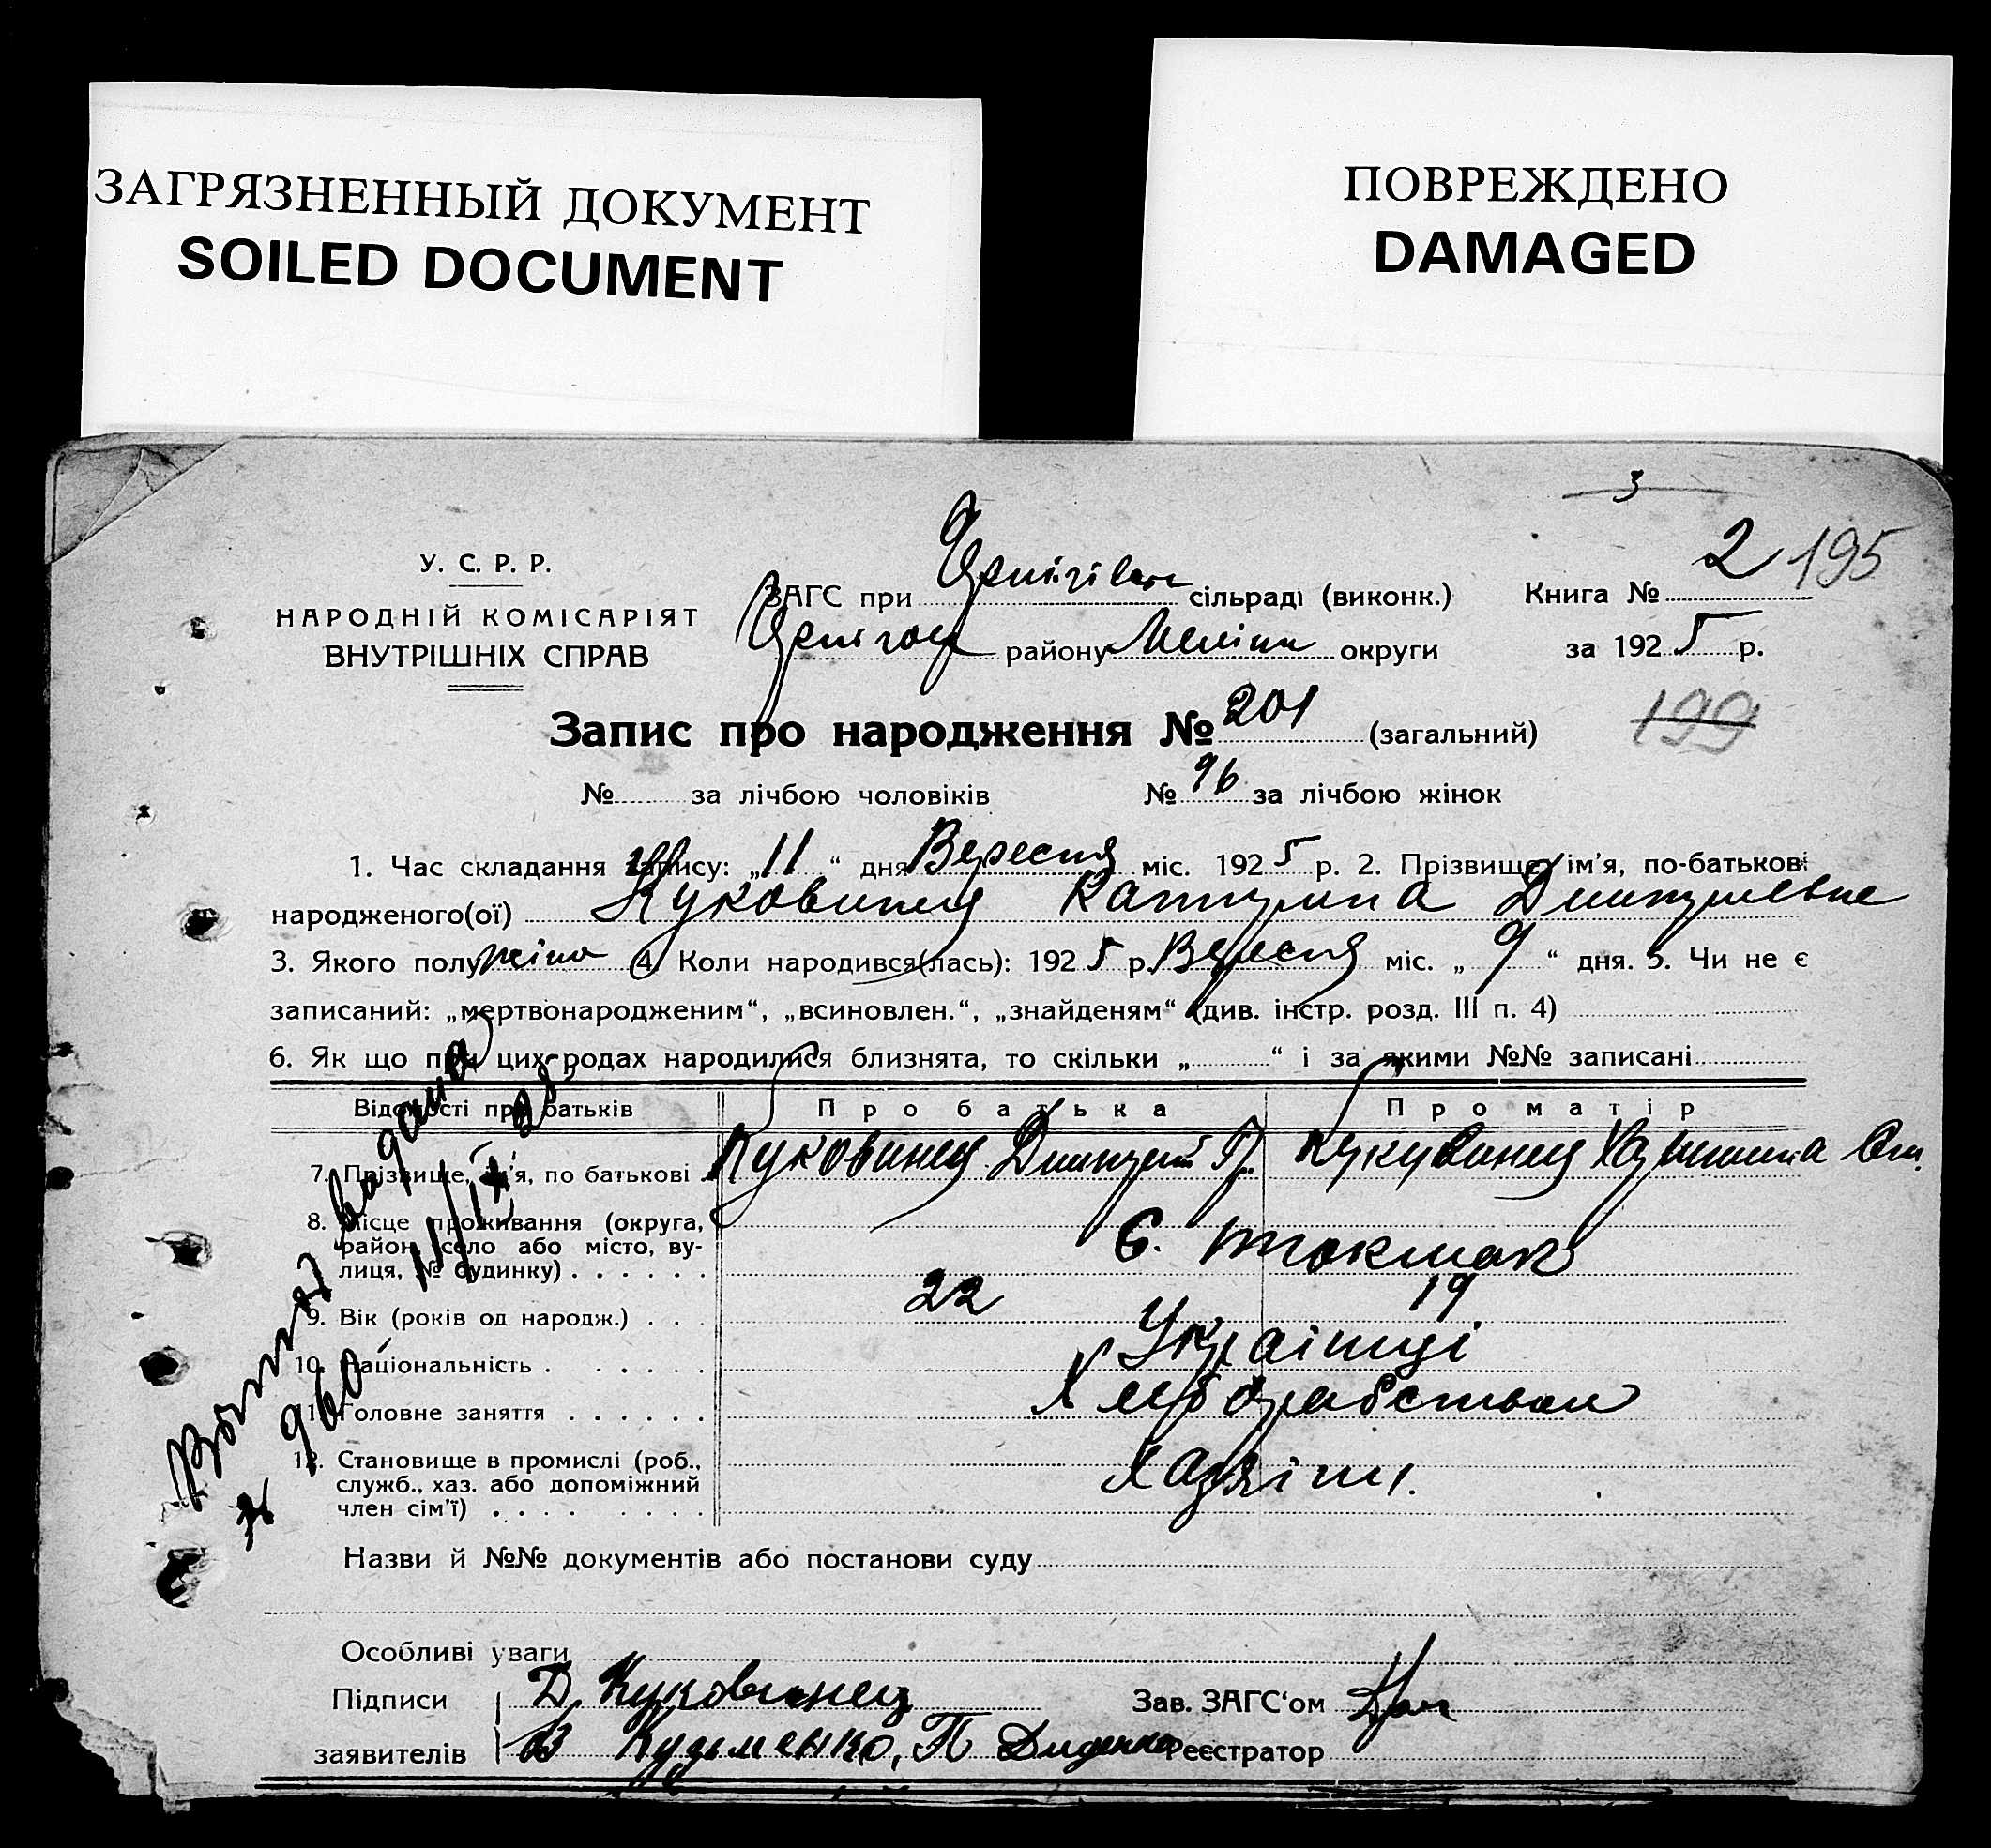 ЗАГРЯЗНЕННЫЙ ДОКУМЕНТ
SOILED DOCUMENT
ПОВРЕЖДЕНО
DAMAGED
3
У. С. Р. Р.
НАРОДНІЙ КОМІСАРІЯТ
ВНУТРІШНІХ СПРАВ
ЗАГС при сільраді (виконк.)
району округи
Книга № 2 195
за 1925 р.
Запис про народження № 201 (загальний)
199
№ за лічбою чоловіків № 96 за лічбою жінок
1. Час складання запису: „11“ дня Вересня міс. 1925 р. 2. Прізвище, ім’я, по-батькові
народженого(ої) Куковинец Катерина Дмитриевна
3. Якого полу жіно 4. Коли народився(лась): 1925 р. Вересня міс. „9“ дня. 5. Чи не є
записаний: „мертвонародженим“, „всиновлен.“, „знайденям“ (див. інстр. розд. III п. 4)
6. Як що при цих родах народилися близнята, то скільки „ “ і за якими №№ записані
Відомості про батьків
Про батька
Про матір
7. Прізвище, ім’я, по батькові Куковинец Дмитрий Куковинец
8. Місце проживання (округа,
район, село або місто, ву-
лиця, № будинку) Токмак
9. Вік (років од народж.) 22 19
10. Національність Українці
11. Головне заняття Хлеборобством
12. Становище в промислі (роб.,
служб., хаз. або допоміжний
член сім’ї) Хазяіни.
Назви й №№ документів або постанови суду
Особливі уваги
Підписи Д. Куковинец Зав. ЗАГС‘ом
заявителів В Кудьменко, П Диденко Реєстратор
видана
11/IX 25
№ 960